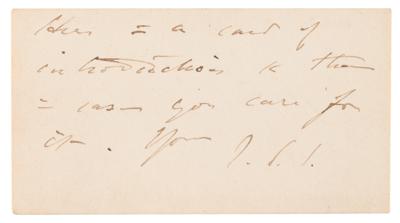 Here = a card of
introduction to them
= case you care for
it. Yours J. S. S.